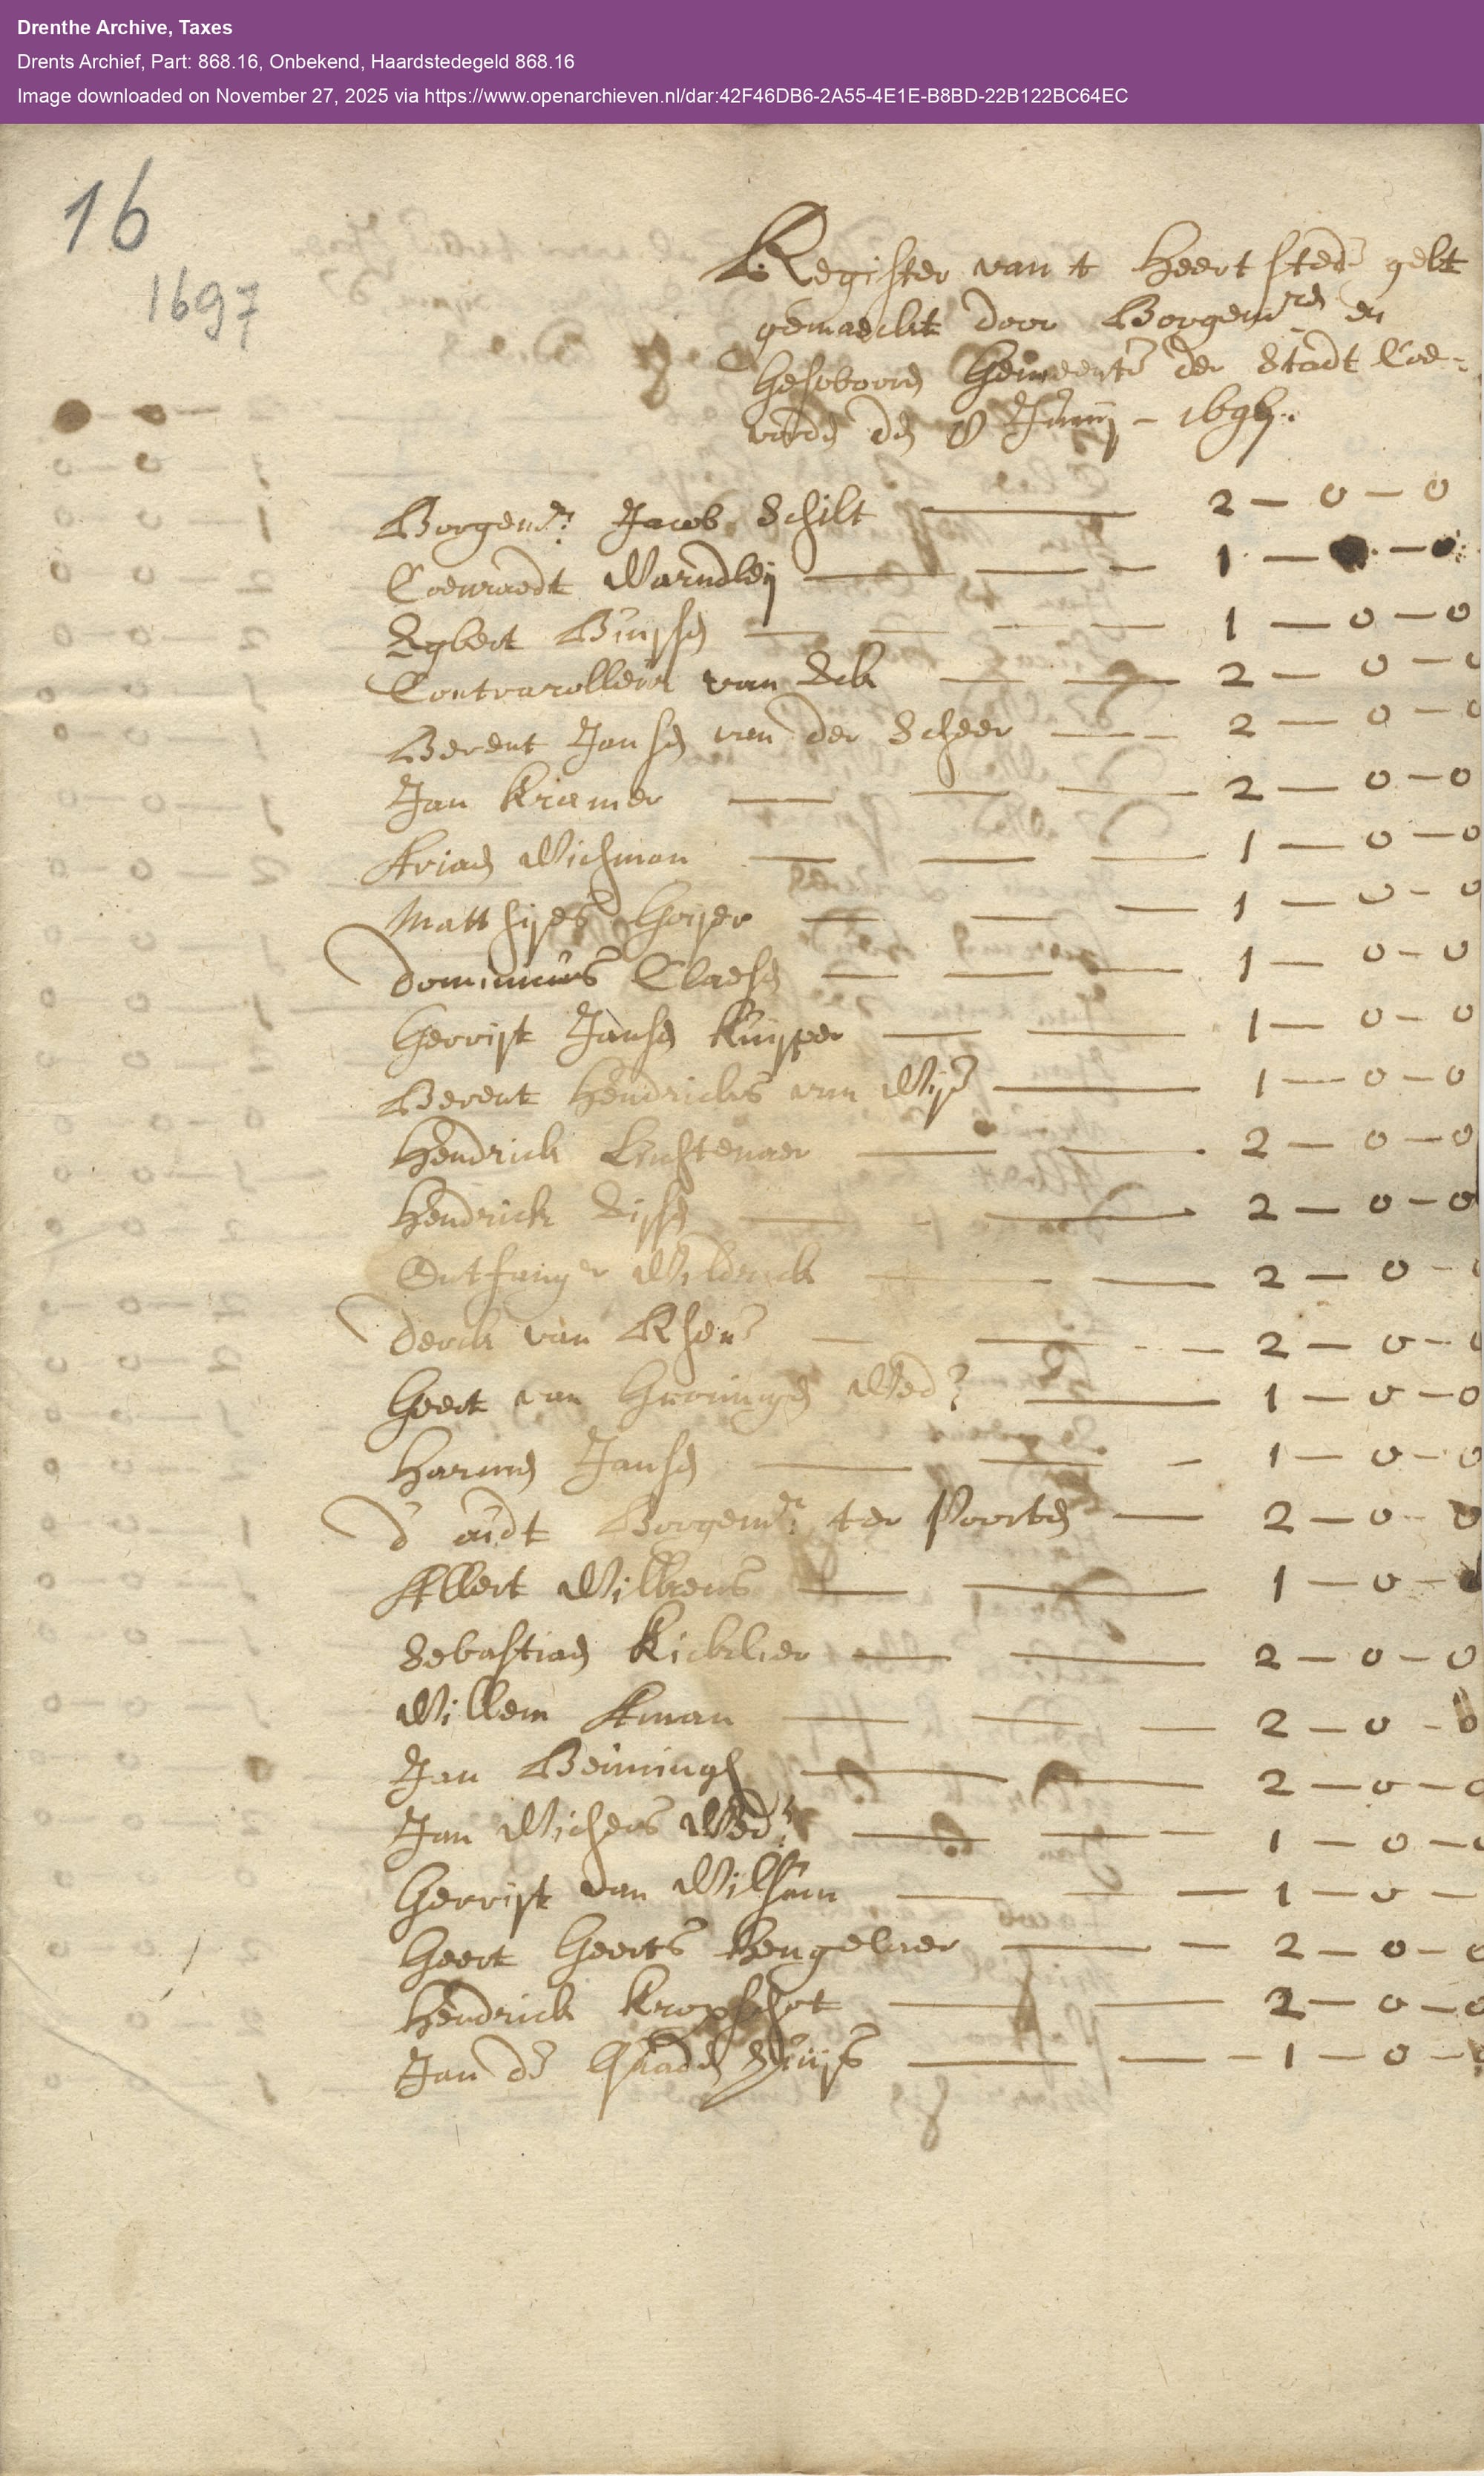 Drenthe Archive, Taxes
Drents Archief, Part: 868.16, Onbekend, Haardstedegeld 868.16
Image downloaded on November 27, 2025 via https://www.openarchieven.nl/dar:42F46DB6-2A55-4E1E-B8BD-22B122BC64EC
16
1697
Register van t Heertstede gelt
gemaeckt door Borgemren en
Geswooren Gemeente der Stadt Coe-
vorden den 8 Junij - 1697.
Borgemr: Jacob Schilt 2 - 0 - 0
Coenraedt Warndleij 1 -
Egbert Buijsen 1 - 0 - 0
Contrarolleur van Eck 2 - 0 - 0
Berent Jansen van der Scheer 2 - 0 - 0
Jan Kramer 2 - 0 - 0
Arian Wichman 1 - 0 - 0
Matthijes Goijer 1 - 0 - 0
Dominicus Claesen 1 - 0 - 0
Gerrijt Jansen Kuijper 1 - 0 - 0
Berent Hendricks van Wije 1 - 0 - 0
Hendrick Lichtenaer 2 - 0 - 0
Hendrick Eijsen 2 - 0 - 0
Ontfanger Wilbrinck 2 - 0 - 0
Derck van Rhene 2 - 0 - 0
Geert van Groningen Wed: 1 - 0 - 0
Harmen Jansen 1 - 0 - 0
d' oudt Borgemr: ter Poorten 2 - 0 - 0
Albert Wilkens 1 - 0 -
Sebastian Kickelier 2 - 0 - 0
Willem Aman 2 - 0 - 0
Jan Benningh 2 - 0 - 0
Jan Wichers Wed: 1 - 0 - 0
Gerrijt van Wilsum 1 - 0 -
Geert Geerts Hengelaer 2 - 0 - 0
Hendrick Kropschot 2 - 0 - 0
Jan de Quade 1 - 0 -